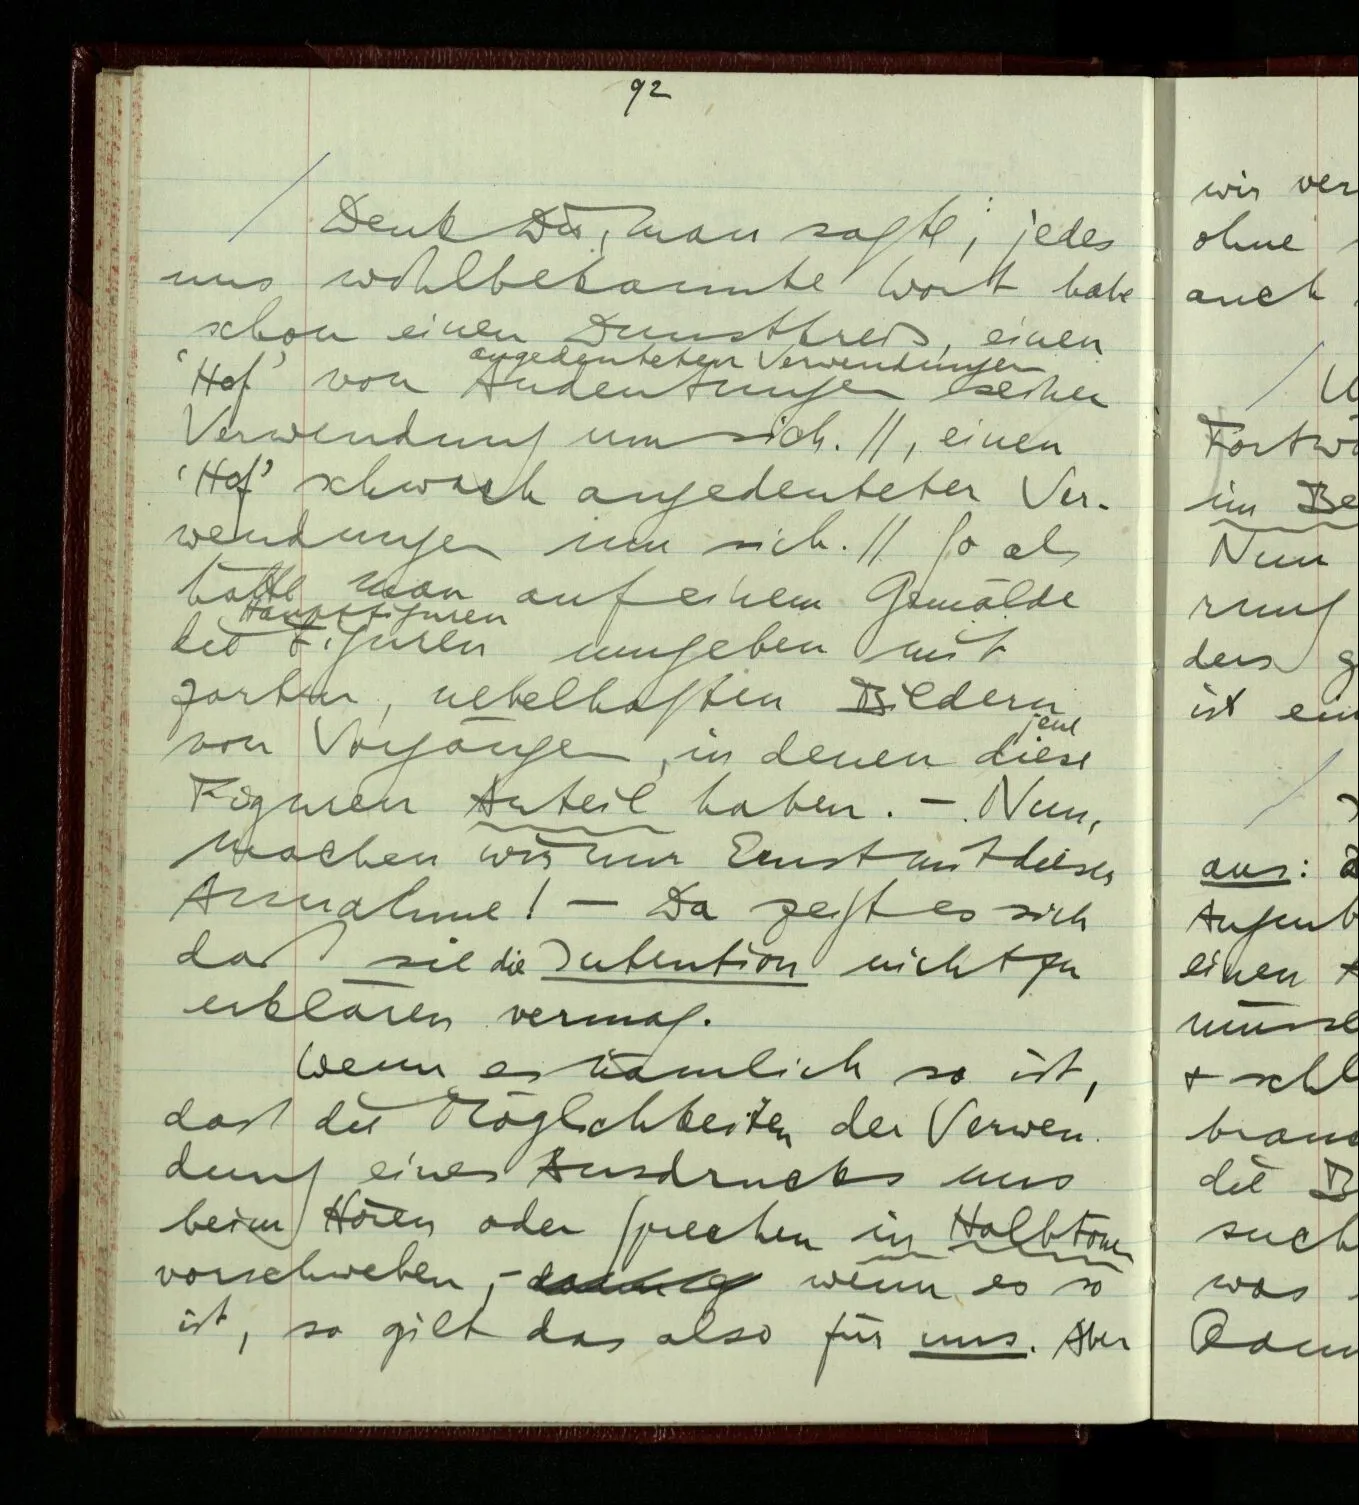 92
Denk Dir, man sagte; jedes
uns wohlbekannte Wort habe
schon einen Dunstkreis, einen
angedeuteten Verwendungen
‘Hof’ von Andeutungen seiner
Verwendung um sich. //, einen
‘Hof’ schwach angedeuteter Ver-
wendungen um sich. // So als
hätte man auf einem Gemälde
Hauptfiguren
die Figuren umgeben mit
zarten, nebelhaften Bildern
von Vorgängen, in denen diese
jene
Figuren Anteil haben. – Nun,
machen wir nur Ernst mit dieser
Annahme! – Da zeigt es sich
daß sie die Intention nicht zu
erklären vermag.
Wenn es nämlich so ist,
daß die Möglichkeiten der Verwen-
dung eines Ausdrucks uns
beim Hören oder Sprechen in Halbtönen
vorschweben, – wenn es so
ist, so gilt das also für uns. Aber
wir ver
ohne
auch
Fortw
im Be
Nun
rung
ders g
ist ein
aus:
Augenb
einen
müsse
+ schl
brauc
die B
such
was